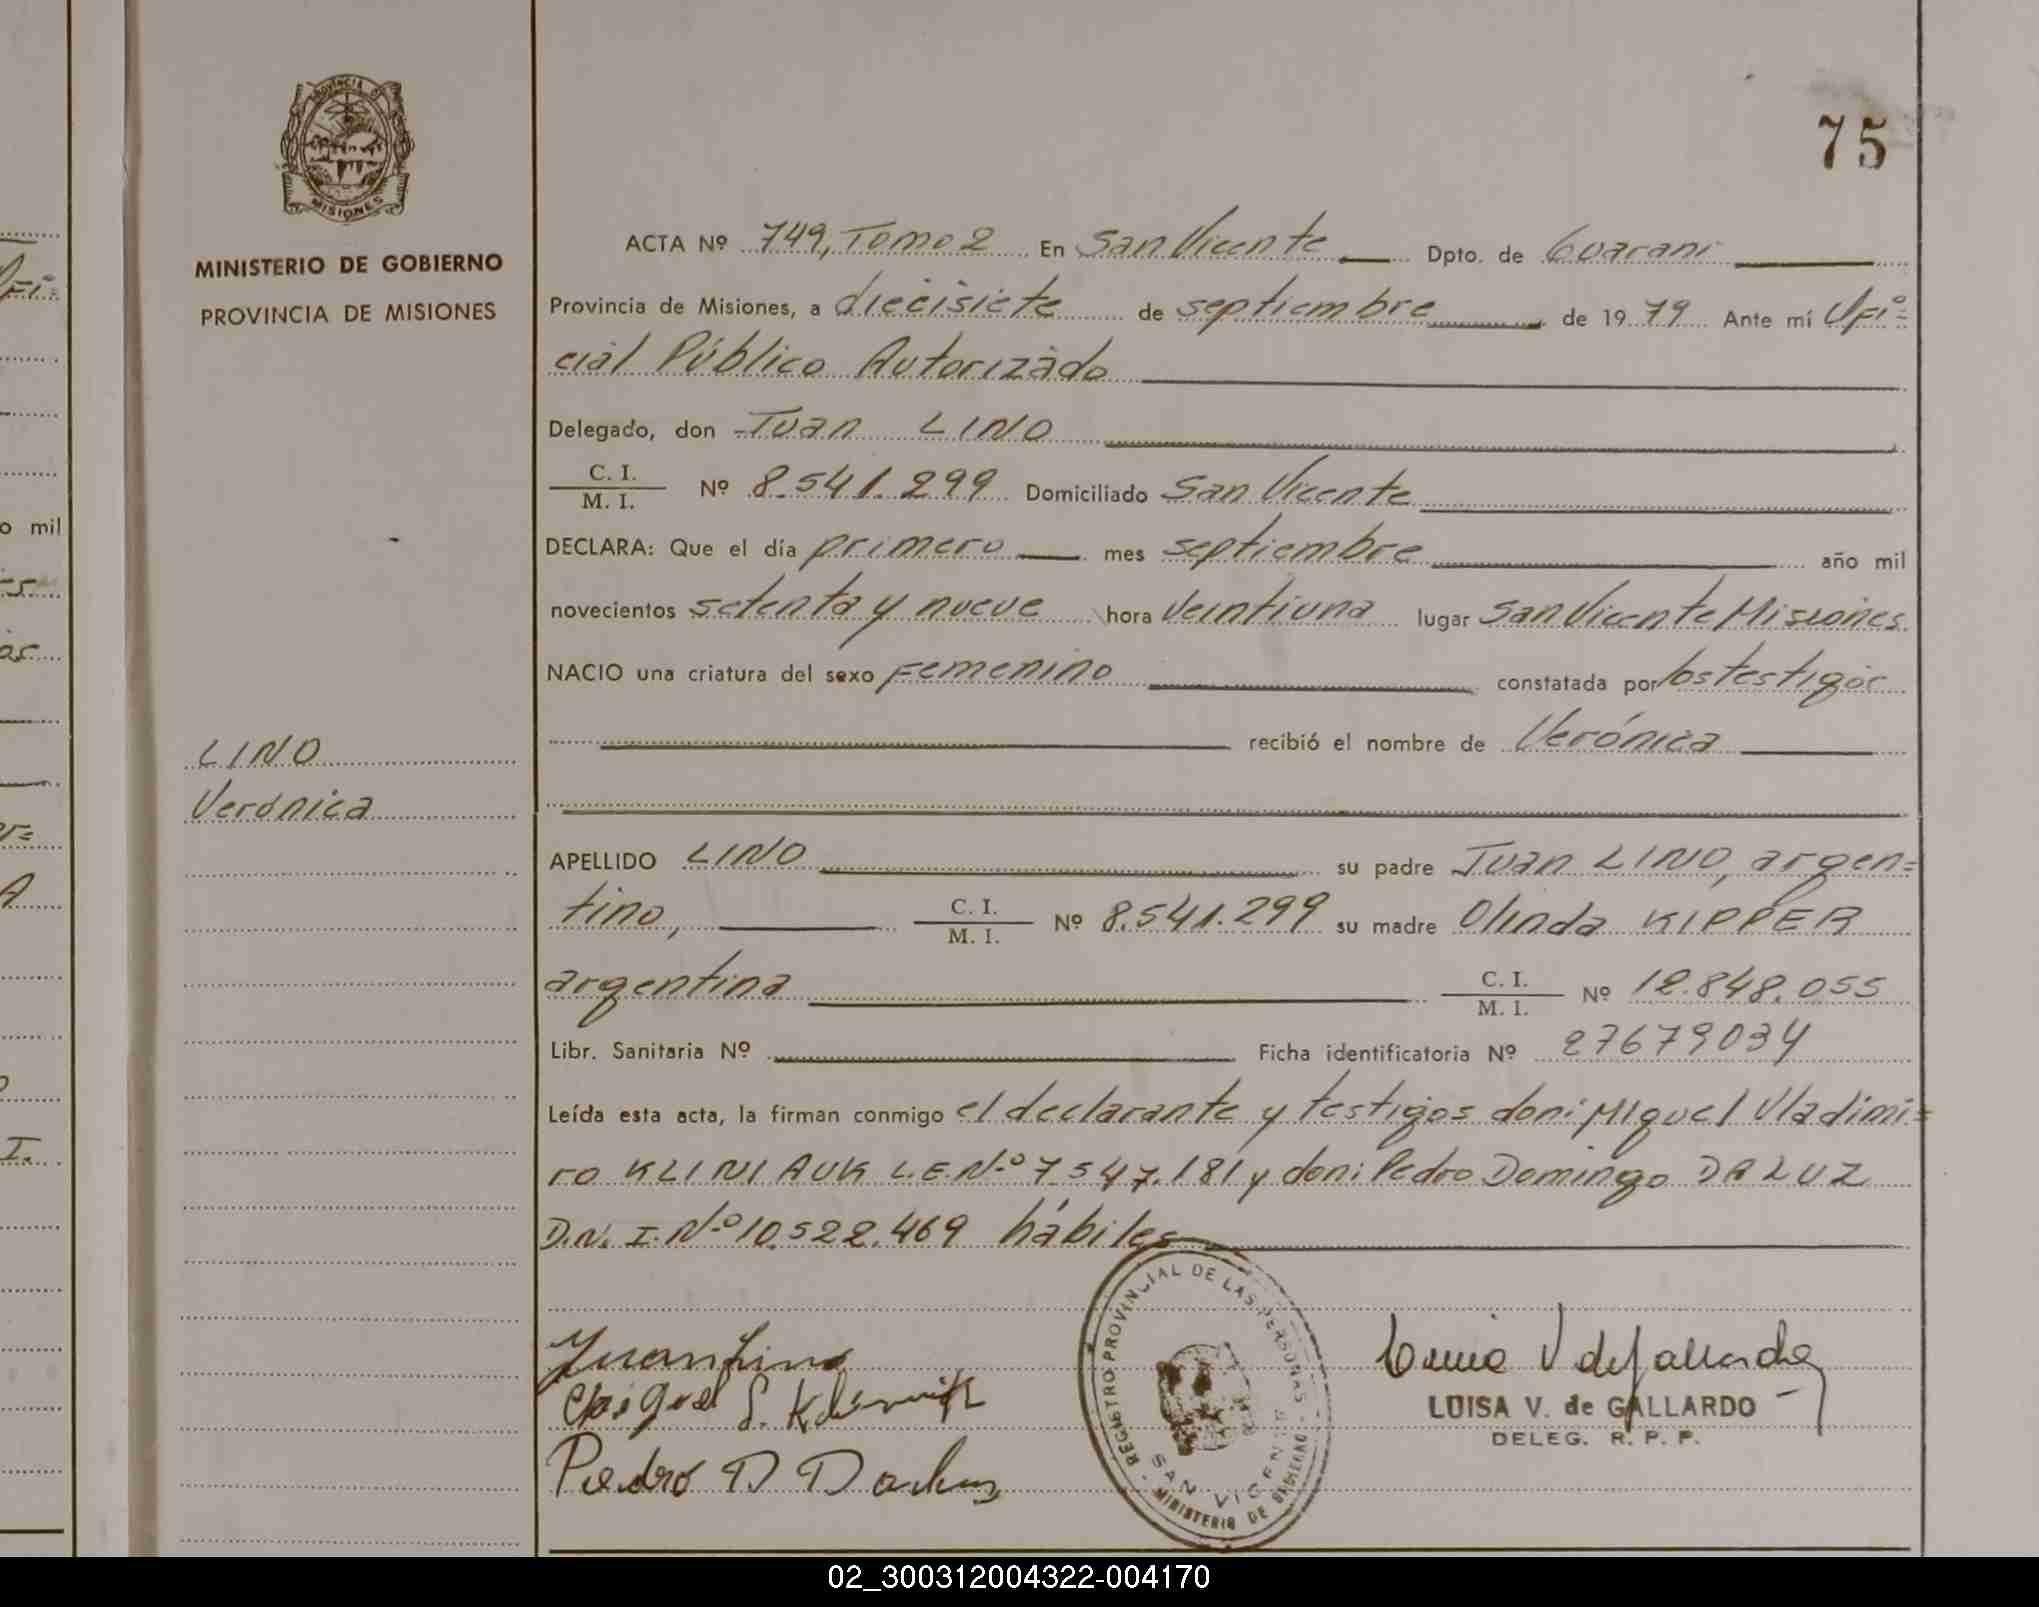 75
PROVINCIA DE
MISIONES
MINISTERIO DE GOBIERNO
PROVINCIA DE MISIONES
LINO
Verónica
ACTA Nº 749, Tomo 2 En San Vicente Dpto. de Guaraní
Provincia de Misiones, a diecisiete de septiembre de 1979 Ante mí Ofi=
cial Público Autorizado
Delegado, don Juan LINO
C. I. / M. I. Nº 8.541.299 Domiciliado San Vicente
DECLARA: Que el día primero mes septiembre año mil
novecientos setenta y nueve hora veintiuna lugar San Vicente Misiones
NACIO una criatura del sexo Femenino constatada por los testigos
recibió el nombre de Verónica
APELLIDO LINO su padre Juan LINO, argen=
tino, C. I. / M. I. Nº 8.541.299 su madre Olinda KIPPER
argentina C. I. / M. I. Nº 12.848.055
Libr. Sanitaria Nº Ficha identificatoria Nº 27679034
Leída esta acta, la firman conmigo el declarante y testigos don: Miguel Vladimi=
ro KLINIAUK L.E.Nº 7547.181 y don: Pedro Domingo DA LUZ
D.N.I.Nº 10.522.469 hábiles
Juan Lino
Pedro D Da Luz
REGISTRO PROVINCIAL DE LAS PERSONAS
SAN VICENTE
MINISTERIO DE GOBIERNO
LUISA V. de GALLARDO
DELEG. R. P. P.
02_300312004322-004170